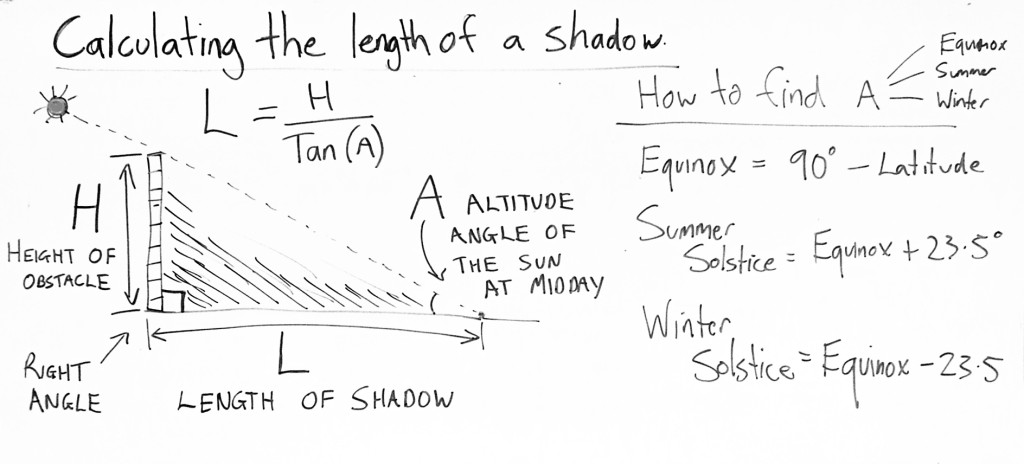 Calculating the length of a shadow.
L = H / Tan (A)
H
HEIGHT OF
OBSTACLE
A ALTITUDE
ANGLE OF
THE SUN
AT MIDDAY
RIGHT
ANGLE
L
LENGTH OF SHADOW
How to find A
Equinox
Summer
Winter
Equinox = 90° – Latitude
Summer
Solstice = Equinox + 23.5°
Winter
Solstice = Equinox – 23.5